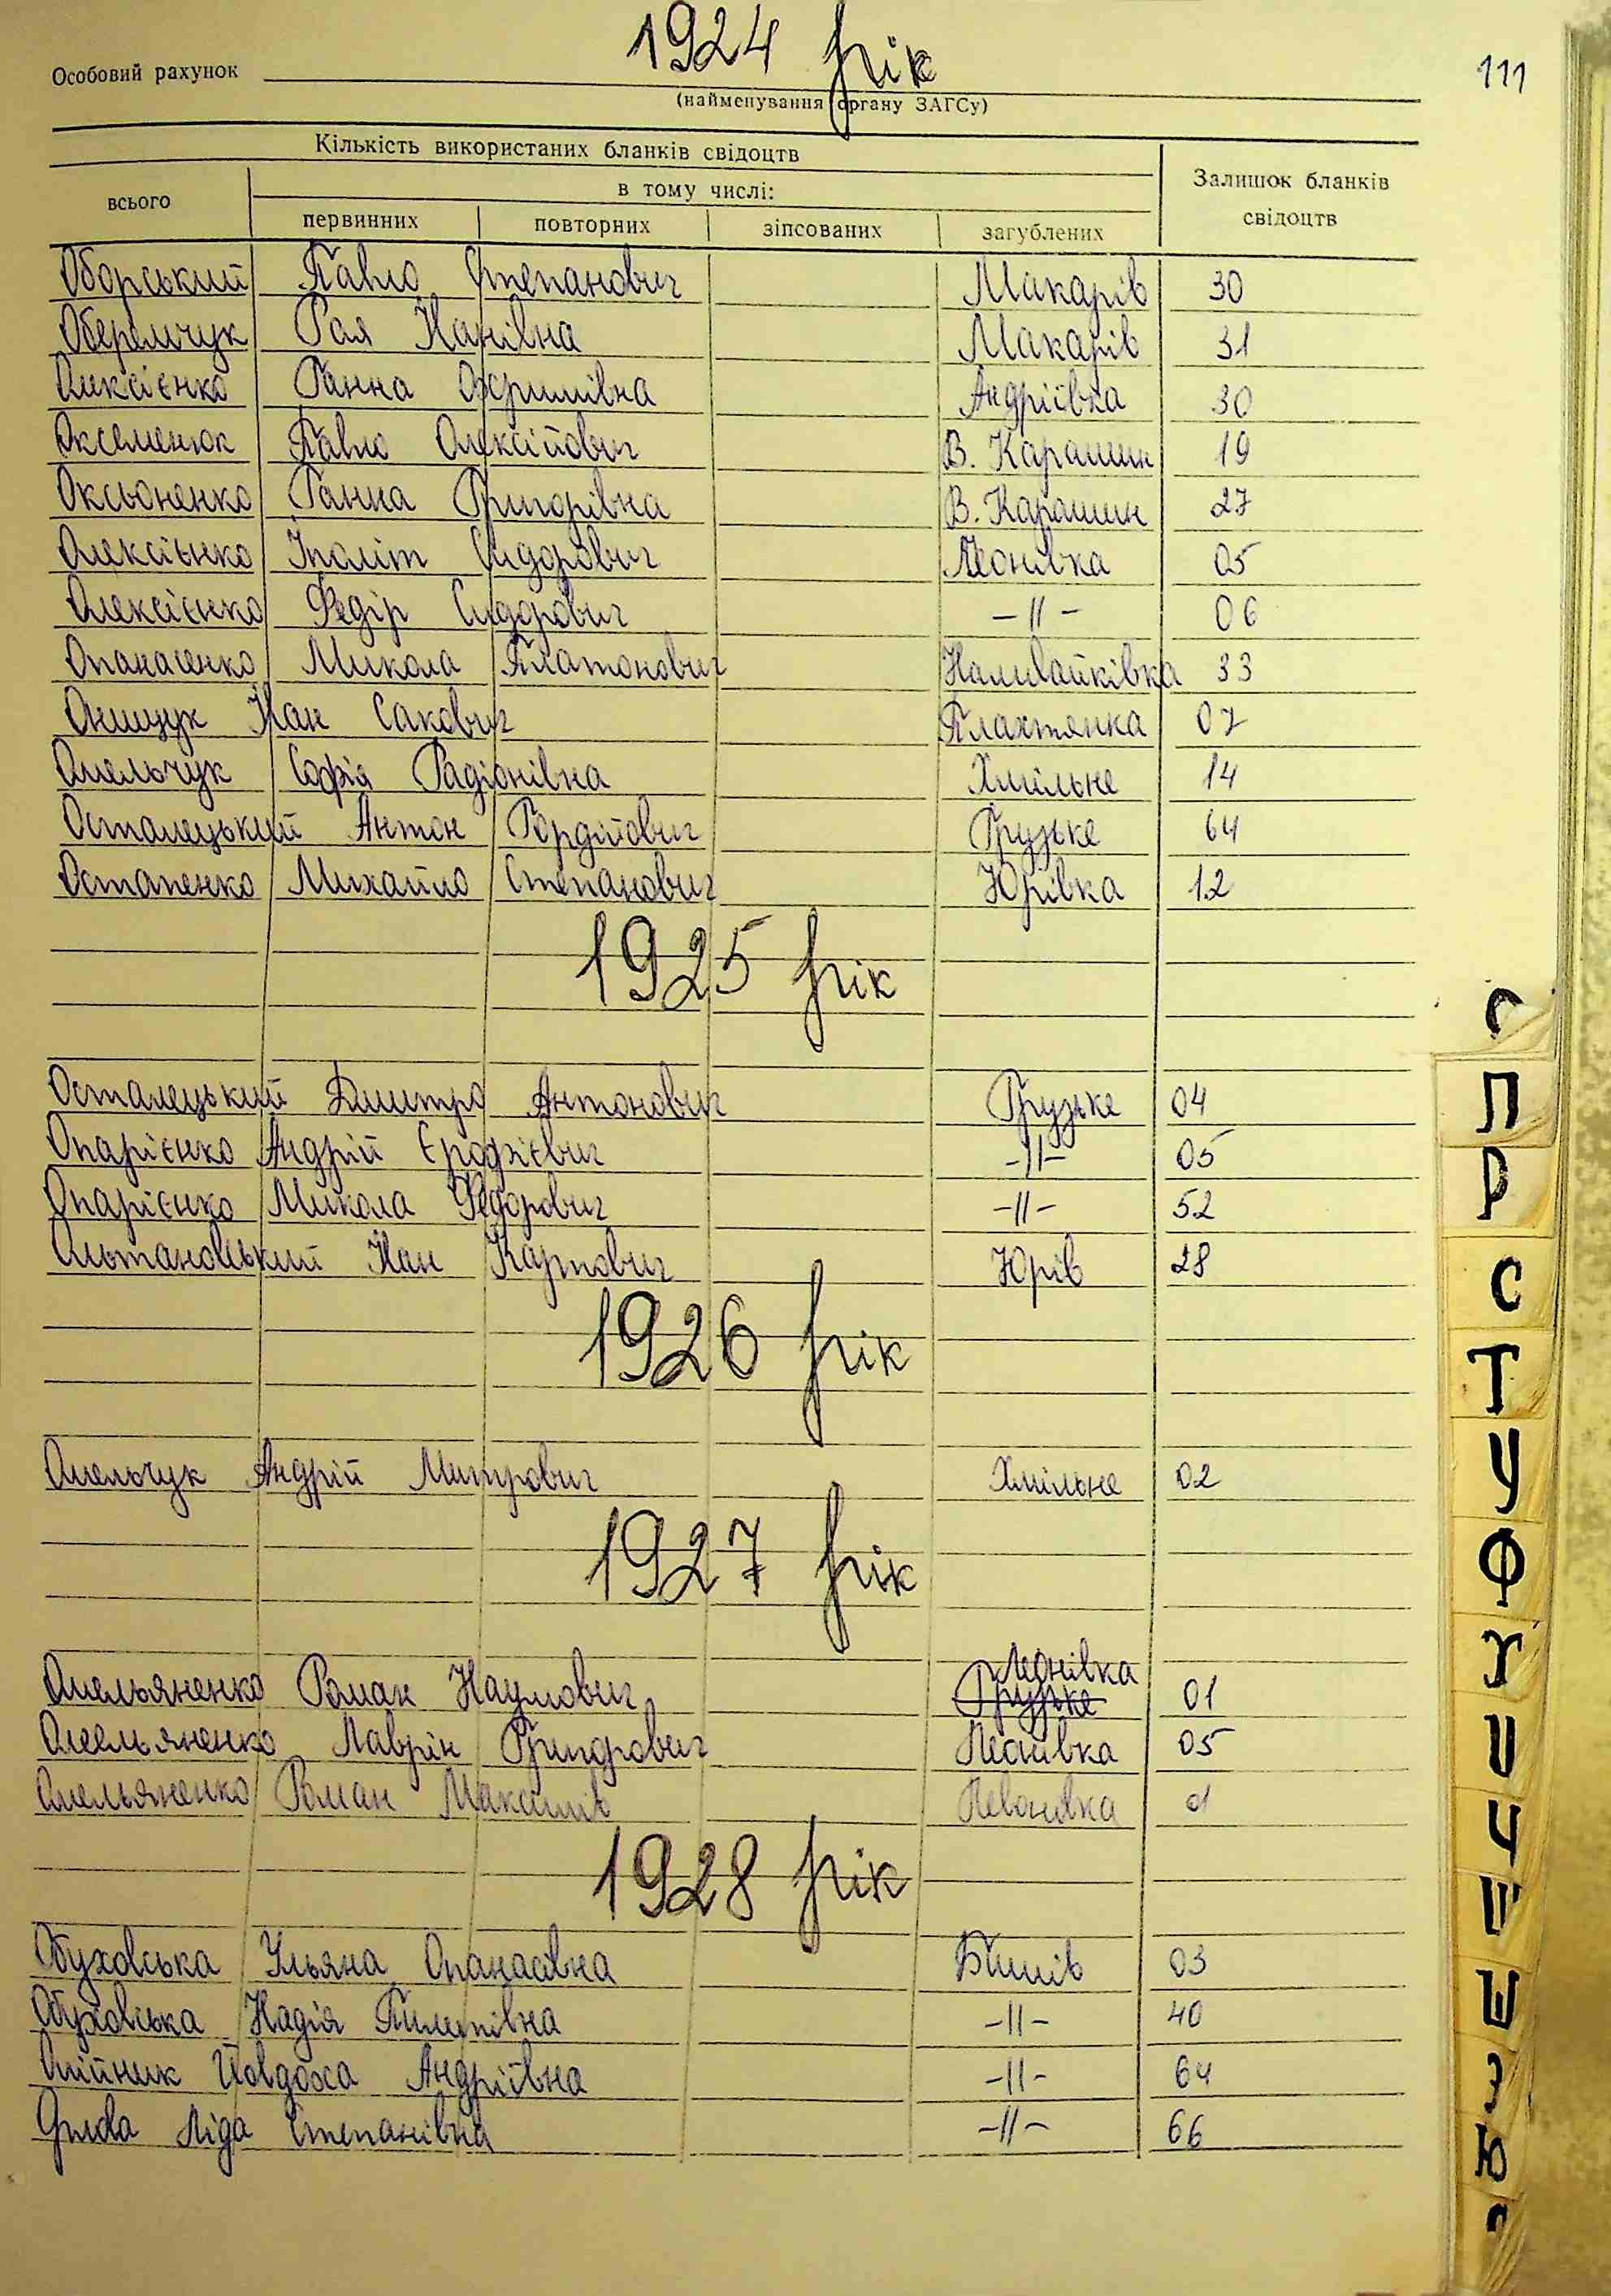 1924 рік
111
Особовий рахунок
(найменування органу ЗАГСу)
Кількість використаних бланків свідоцтв
Залишок бланків свідоцтв
в тому числі:
всього
первинних повторних зіпсованих загублених
Оборський Павло Степанович Макарів 30
Оберемчук Рая Іванівна Макарів 31
Олексієнко Ганна Охримівна Андріївка 30
Оксеменюк Павло Олексійович В. Карашин 19
Оксьоненко Ганна Григорівна В. Карашин 27
Олексієнко Іполіт Сидорович Леонівка 05
Олексієнко Федір Сидорович -||- 06
Опанасенко Микола Платонович Наливайківка 33
Онищук Іван Сакович Плахтянка 07
Омельчук Софія Радіонівна Хмільне 14
Осталецький Антон Гордійович Грузьке 64
Остапенко Михайло Степанович Юрівка 12
1925 рік
Осталецький Дмитро Антонович Грузьке 04
Опарієнко Андрій Єрофієвич -||- 05
Опарієнко Микола Федорович -||- 52
Ольтановський Іван Карпович Юрів 28
1926 рік
Омельчук Андрій Митрович Хмільне 02
1927 рік
Леонівка
Омельяненко Роман Наумович Грузьке 01
Омельяненко Лаврін Григорович Леонівка 05
Омельяненко Роман Максимів Левонівка 01
1928 рік
Обуховська Ульяна Опанасівна Бишів 03
Обуховська Надія Пилипівна -||- 40
Олійник Йовдоха Андріївна -||- 64
Ліда Степанівна -||- 66
О
П
Р
С
Т
У
Ф
Х
Ц
Ч
Щ
Ш
З
Ю